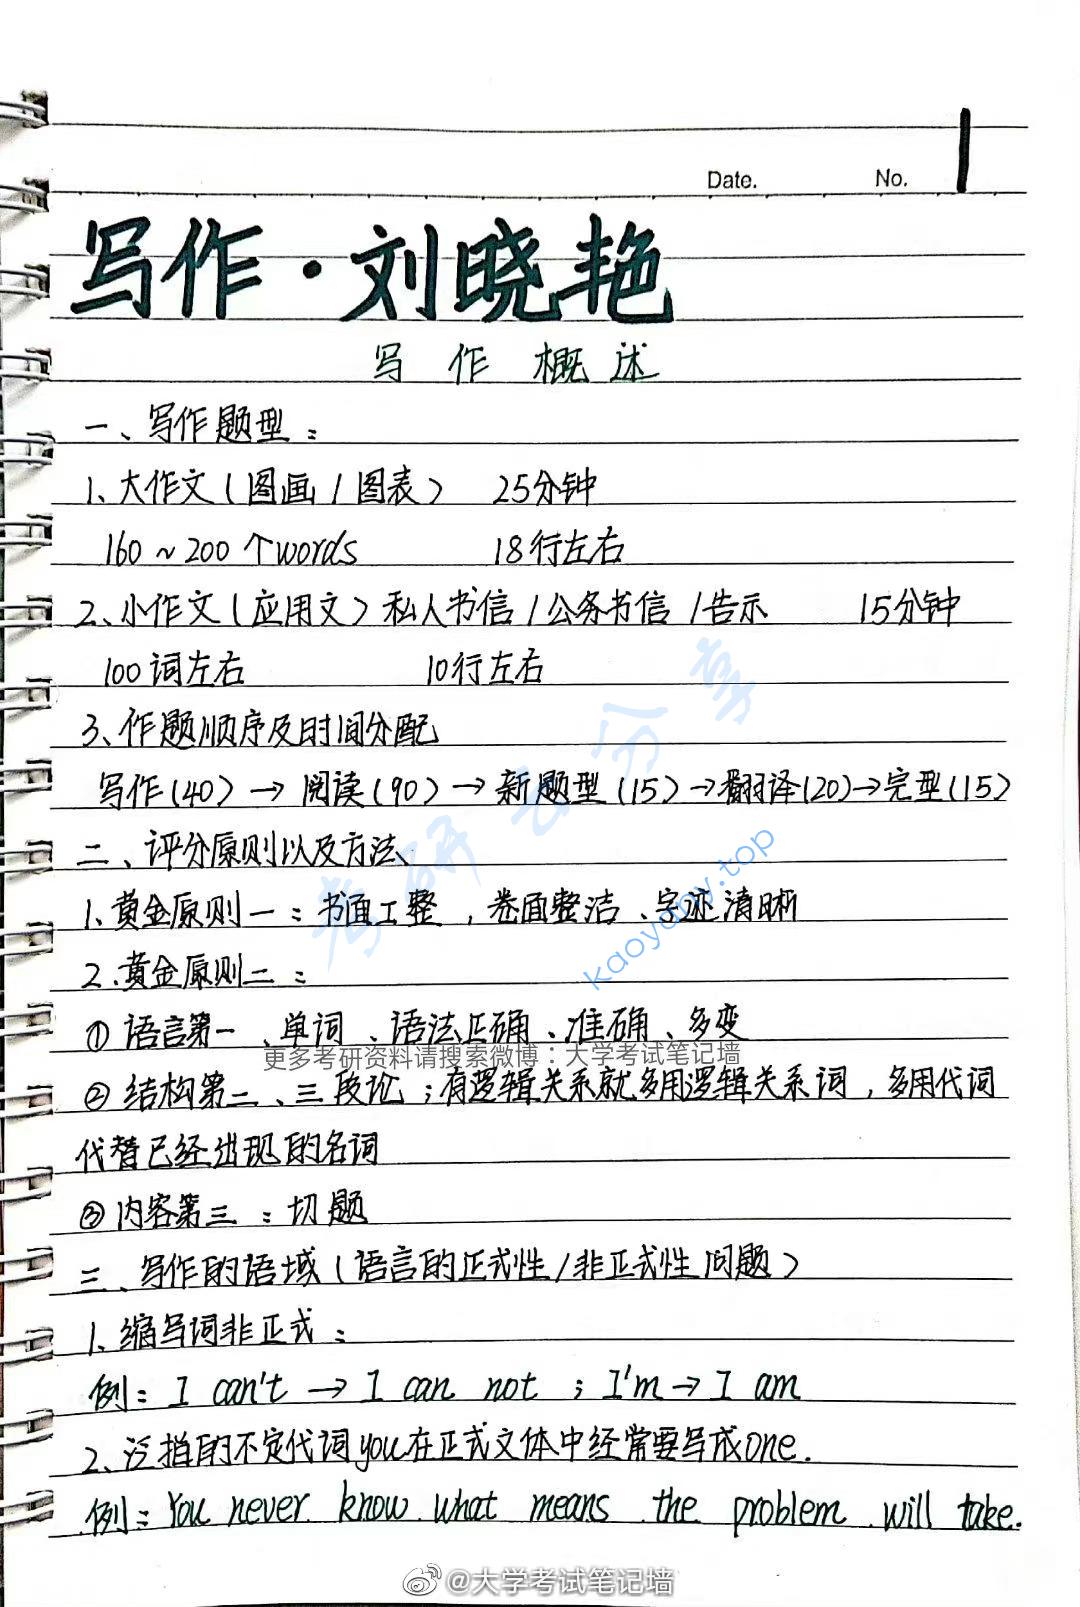 Date. No. 1
写作·刘晓艳
写作概述
一、写作题型：
1、大作文（图画/图表） 25分钟
160~200个words 18行左右
2、小作文（应用文）私人书信/公务书信/告示 15分钟
100词左右 10行左右
3、作题顺序及时间分配
写作(40)→阅读(90)→新题型(15)→翻译(20)→完型(15)
二、评分原则以及方法
1、黄金原则一：书面工整，卷面整洁、字迹清晰
2、黄金原则二：
①语言第一、单词、语法正确、准确、多变
更多考研资料请搜索微博：大学考试笔记墙
②结构第二、三段论；有逻辑关系就多用逻辑关系词，多用代词
代替已经出现的名词
③内容第三：切题
三、写作的语域（语言的正式性/非正式性问题）
1、缩写词非正式：
例：I can't → I can not；I'm → I am
2、泛指的不定代词you在正式文体中经常要写成one.
例：You never know what means the problem will take.
考研云分享
kaoyany.top
@大学考试笔记墙